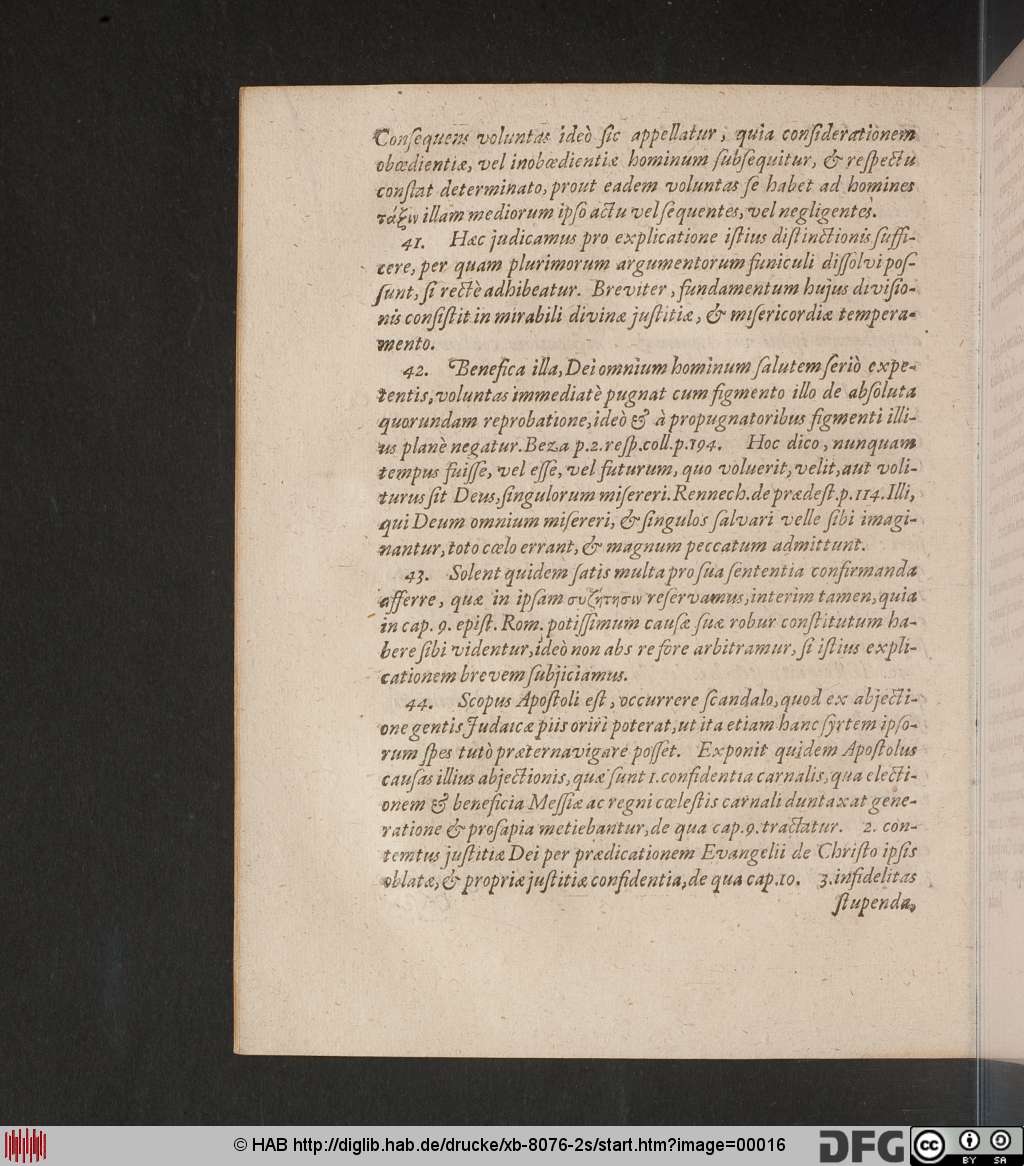 Conſequens voluntas ideò ſic appellatur, quia conſiderationem
obœdientiæ, vel inobœdientiæ hominum ſubſequitur, & reſpectu
conſtat determinato, prout eadem voluntas ſe habet ad homines
τάξιν illam mediorum ipſo actu vel ſequentes, vel negligentes.
41. Hæc judicamus pro explicatione iſtius diſtinctionis ſuffi-
cere, per quam plurimorum argumentorum funiculi diſſolvi poſ-
ſunt, ſi rectè adhibeatur. Breviter, fundamentum hujus diviſio-
nis conſiſtit in mirabili divinæ juſtitiæ, & miſericordiæ tempera-
mento.
42. Benefica illa, Dei omnium hominum ſalutem ſeriò expe-
tentis, voluntas immediatè pugnat cum figmento illo de abſoluta
quorundam reprobatione, ideò & à propugnatoribus figmenti illi-
us planè negatur. Beza p.2. reſp. coll. p.194. Hoc dico, nunquam
tempus fuiſſe, vel eſſe, vel futurum, quo voluerit, velit, aut voli-
turus ſit Deus, ſingulorum miſereri. Rennech. de prædeſt. p. 114. Illi,
qui Deum omnium miſereri, & ſingulos ſalvari velle ſibi imagi-
nantur, toto cœlo errant, & magnum peccatum admittunt.
43. Solent quidem ſatis multa pro ſua ſententia confirmanda
afferre, quæ in ipſam συζήτησιν reſervamus, interim tamen, quia
in cap. 9. epiſt. Rom. potiſſimum cauſæ ſuæ robur conſtitutum ha-
bere ſibi videntur, ideò non abs re fore arbitramur, ſi iſtius expli-
cationem brevem ſubjiciamus.
44. Scopus Apoſtoli eſt, occurrere ſcandalo, quod ex abjecti-
one gentis Judaicæ piis oriri poterat, ut ita etiam hanc ſyrtem ipſo-
rum ſpes tutò præternavigare poſſet. Exponit quidem Apoſtolus
cauſas illius abjectionis, quæ ſunt 1. confidentia carnalis, qua electi-
onem & beneficia Meſſiæ ac regni cœleſtis carnali duntaxat gene-
ratione & proſapia metiebantur, de qua cap. 9. tractatur. 2. con-
temtus juſtitiæ Dei per prædicationem Evangelii de Chriſto ipſis
oblatæ, & propriæ juſtitiæ confidentia, de qua cap. 10. 3. infidelitas
ſtupenda,
© HAB http://diglib.hab.de/drucke/xb-8076-2s/start.htm?image=00016
DFG
cc BY SA